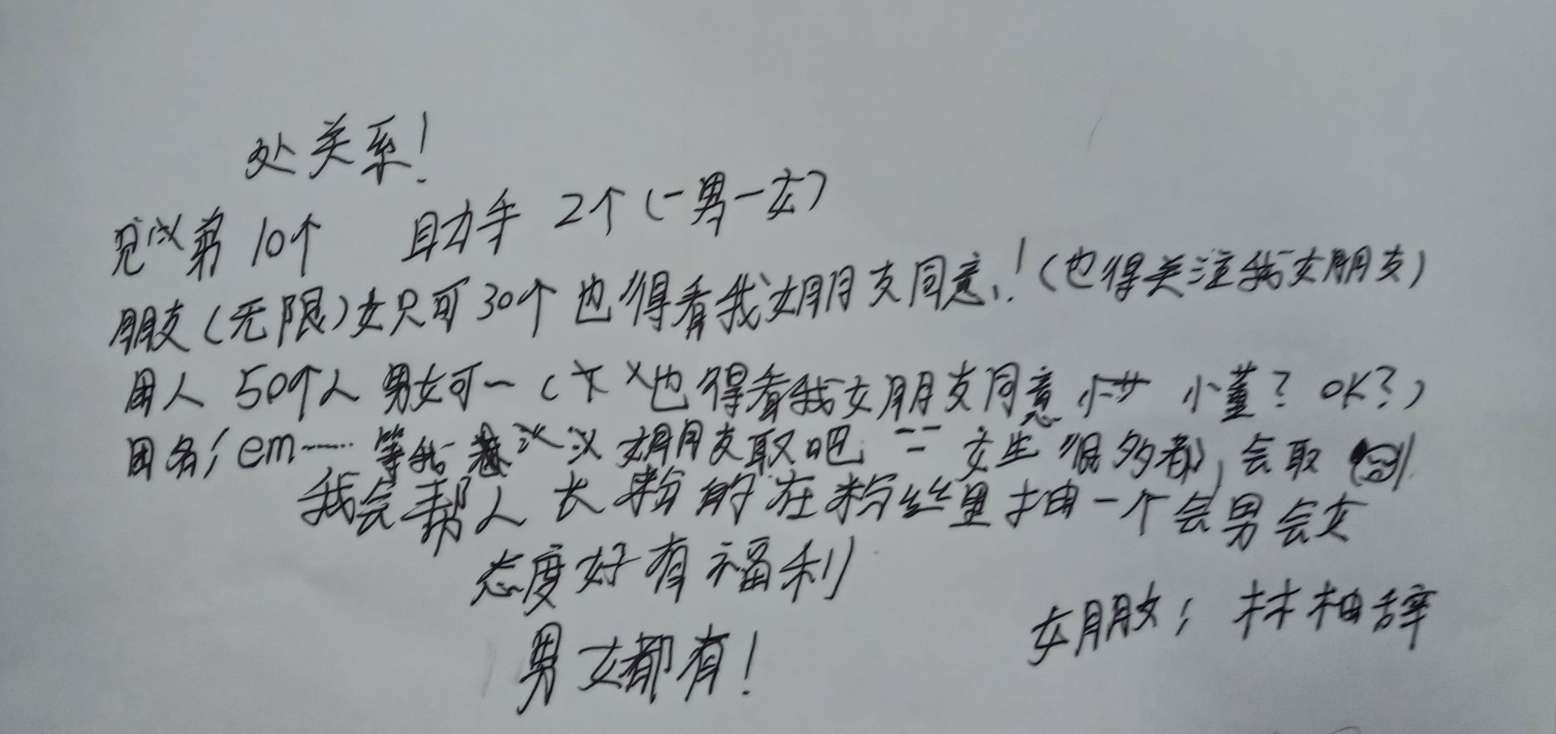 处关系!
兄弟10个 助手 2个(一男一女)
朋友(无限)女只可30个也得看我女朋友同意!(也得关注我女朋友)
团人 50个人 男女可一(女也得看我女朋友同意 小董? OK?)
团名; em…… 等我女朋友取吧 女生很多都会取
我会帮人长粉的在粉丝里抽一个会男会女
态度好有福利
男女都有!
女朋友; 林柚辞